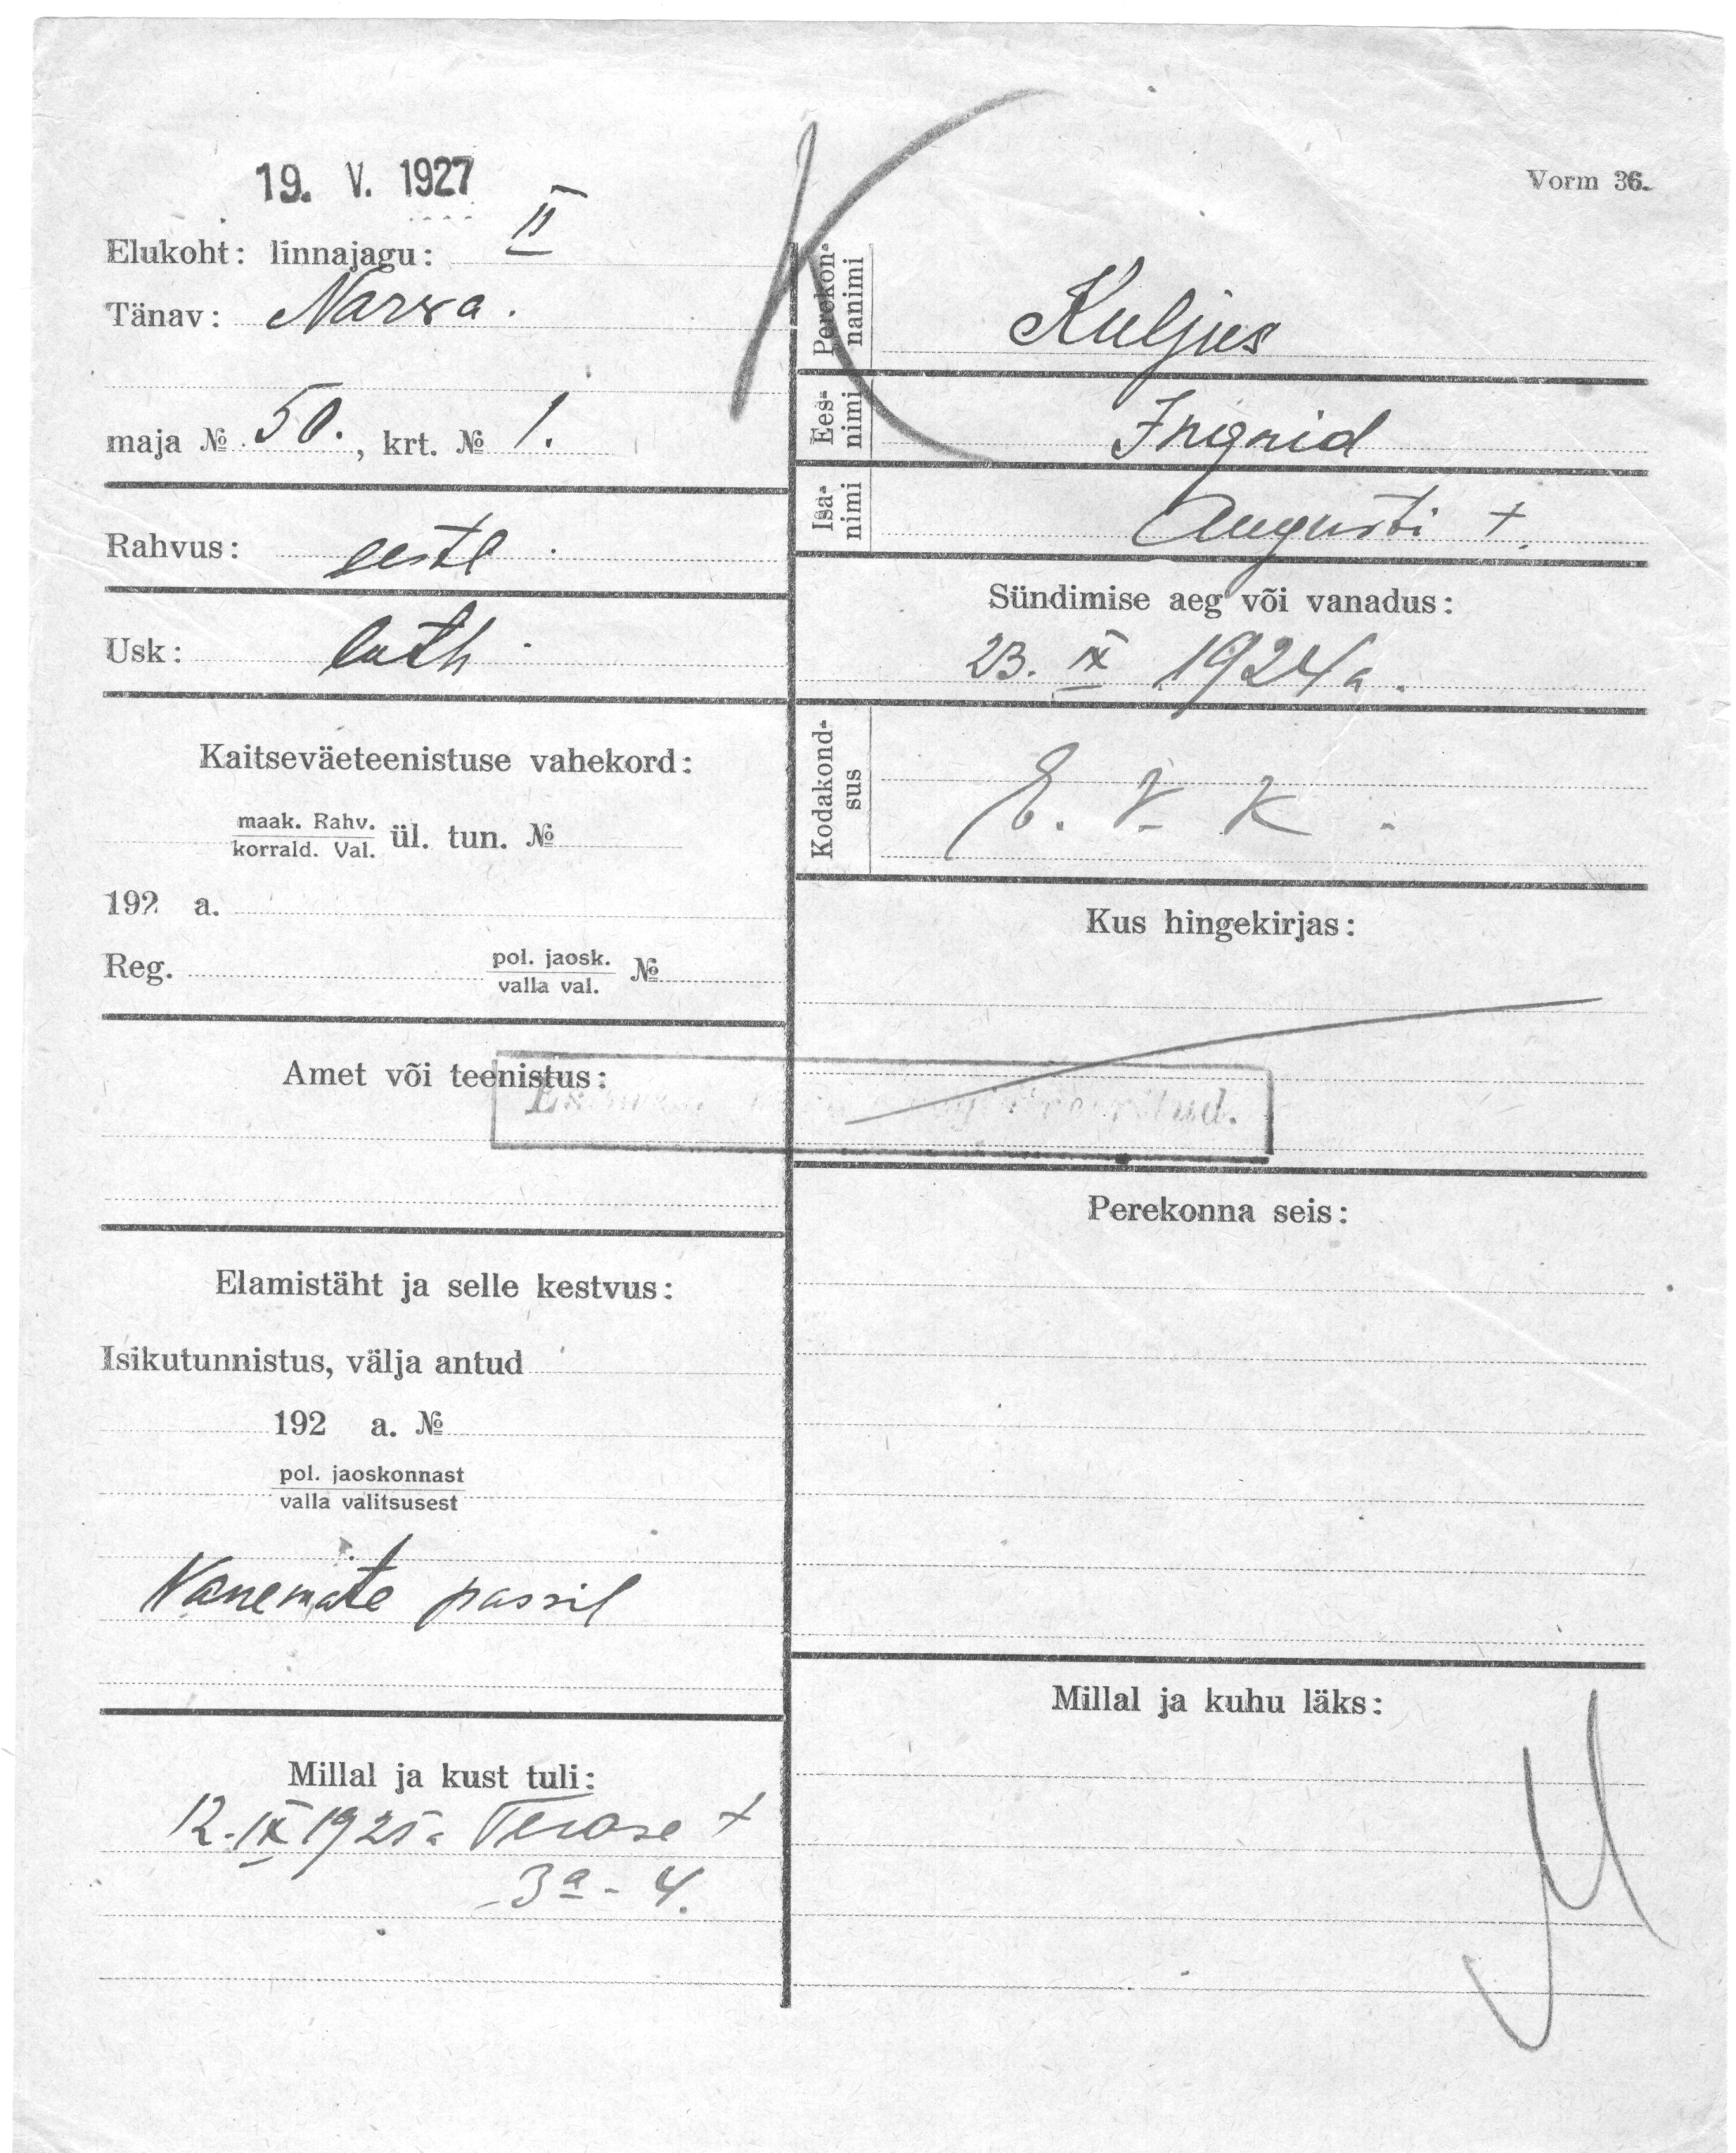 19. V. 1927
Vorm 36.
K
Elukoht: linnajagu: II
Tänav: Narva.
maja № 50., krt. № 1.
Rahvus: eestl.
Usk: luth.
Kaitseväeteenistuse vahekord:
maak. Rahv.
korrald. Val. ül. tun. №
192 a.
Reg. pol. jaosk.
valla val. №
Amet või teenistus:
Elamistäht ja selle kestvus:
Isikutunnistus, välja antud
192 a. №
pol. jaoskonnast
valla valitsusest
Vanemate passil
Millal ja kust tuli:
12. IX 1925 a Terase +
-3ª- 4.
Perekon-
nanimi Kuljus
Ees-
nimi Ingrid
Isa-
nimi Augusti +.
Sündimise aeg või vanadus:
23. IX 1924 a.
Kodakond-
sus E. V. K.
Kus hingekirjas:
Perekonna seis:
Millal ja kuhu läks: